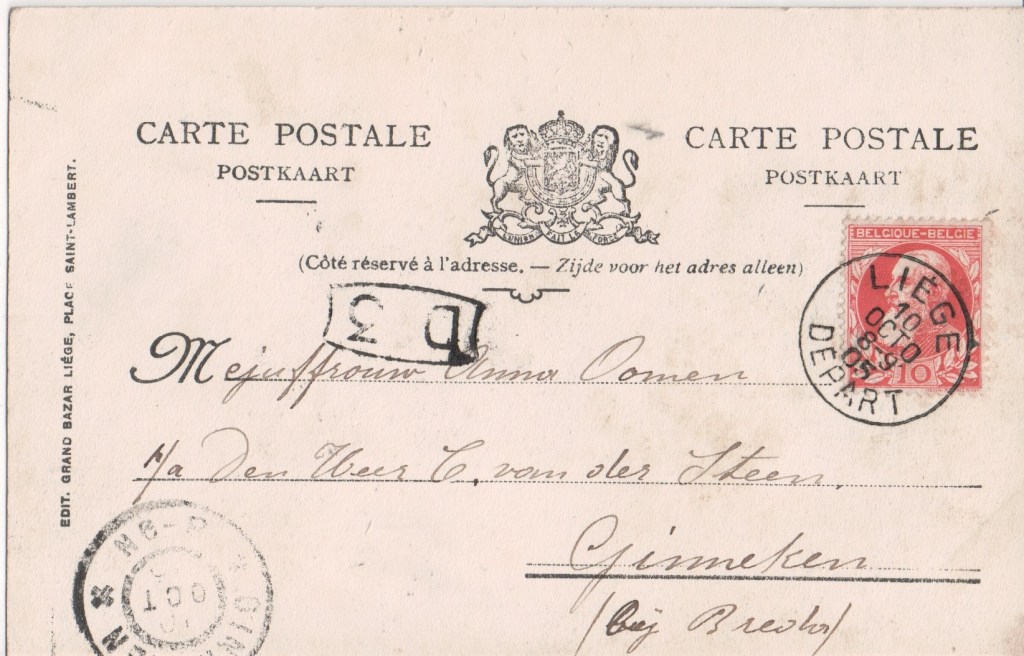 CARTE POSTALE
POSTKAART
CARTE POSTALE
POSTKAART
L'UNION FAIT LA FORCE
(Côté réservé à l'adresse. — Zijde voor het adres alleen)
BELGIQUE-BELGIE
10
LIÉGE
10
OCTO
8-9
05
DÉPART
D 3
Mejuffrouw Anna Oomen
p/a Den Heer C. van der Steen.
Ginneken
(bij Breda)
EDIT. GRAND BAZAR LIÉGE, PLACE SAINT-LAMBERT.
OCT